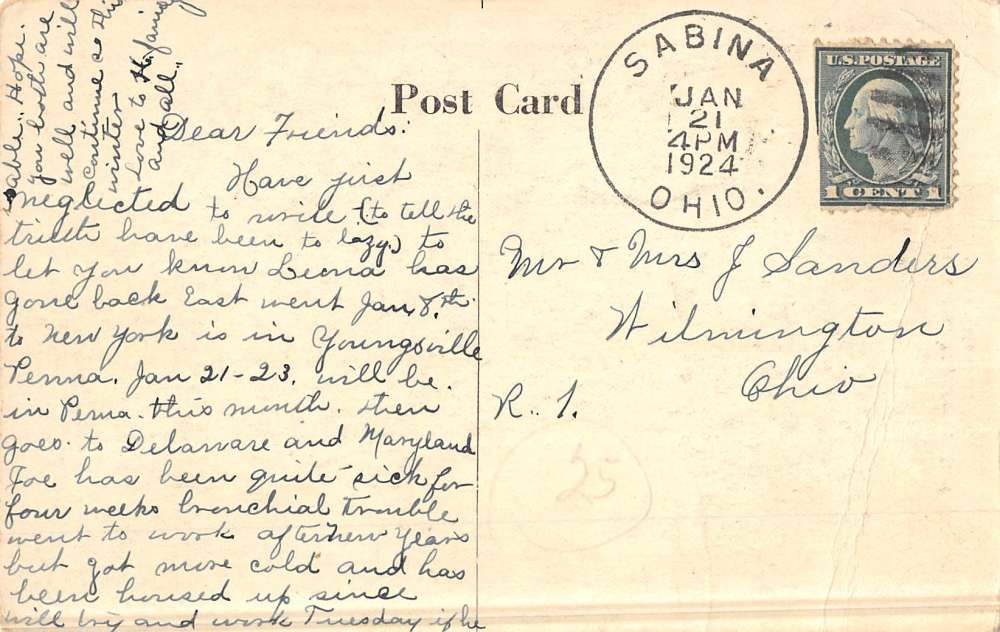 Post Card
SABINA
JAN
21
4PM
1924
OHIO.
U.S. POSTAGE
1 CENT 1
Dear Friends.
Have just
neglected to write (to tell the
truth have been to lazy.) to
let you know Leona has
gone back East went Jan 8th
to New York is in Youngsville
Penna. Jan 21-23. will be.
in Penna. this month. then
goes to Delaware and Maryland
Joe has been quite sick for
four weeks bronchial trouble
went to work after new years
but got more cold and has
been housed up since
will try and work Tuesday if he
able. Hope
you both are
well and will
continue so this
winter
Love to
and all"
Mr & Mrs J Sanders
Wilmington
Ohio
R. 1.
25